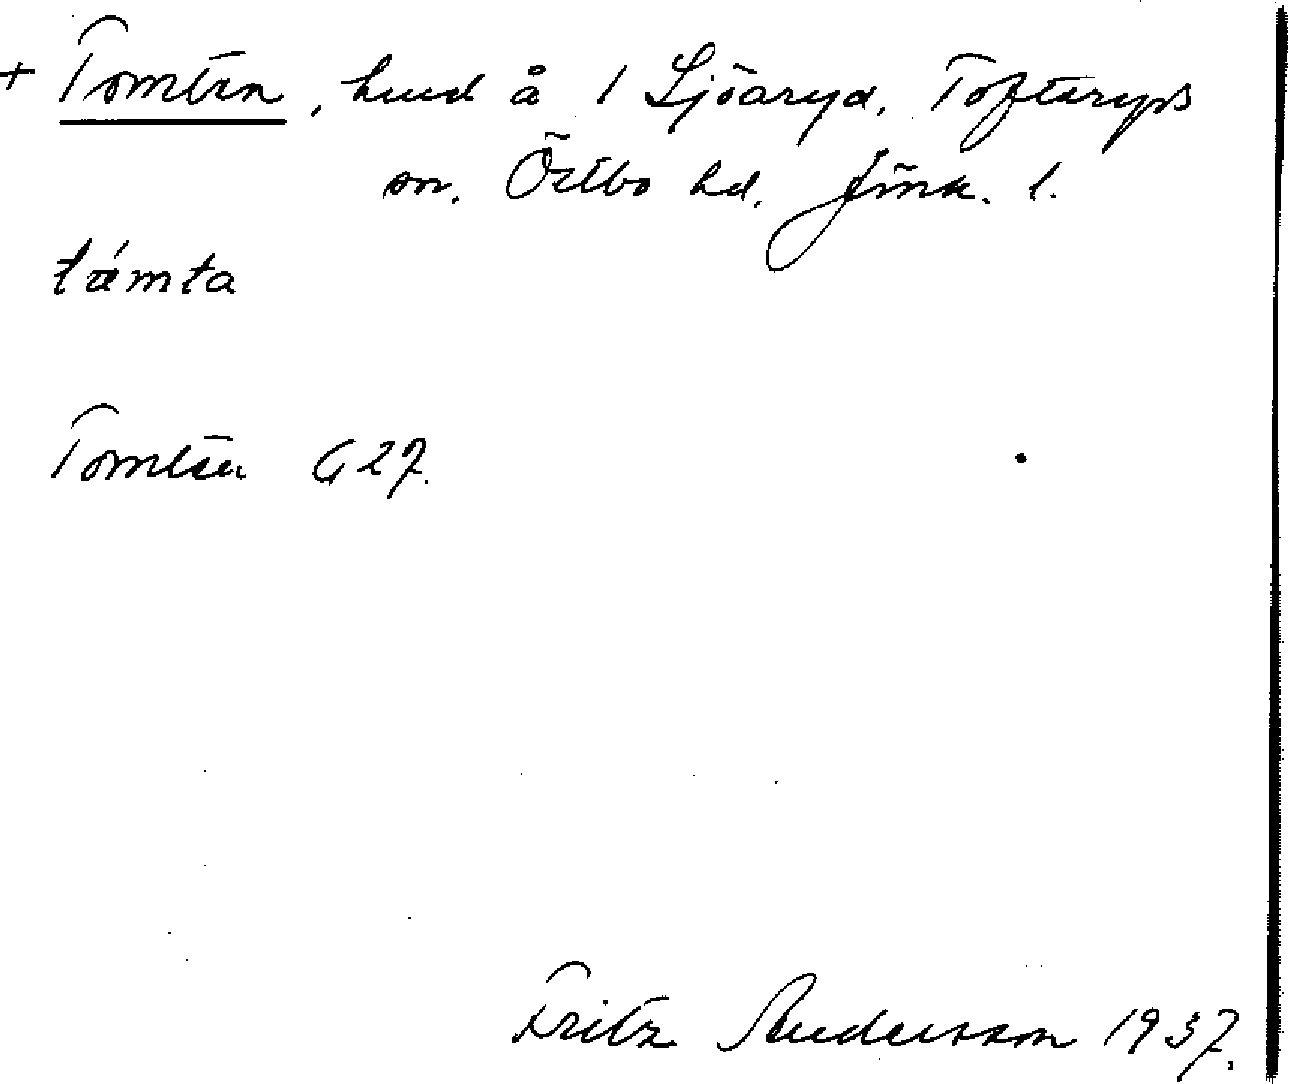 + Tomten, lund å 1 Sjöaryd, Toftaryds
sn. Östbo hd. Jönk. l.
támta
Tomten G 27.
Fritz Andersson 1937.